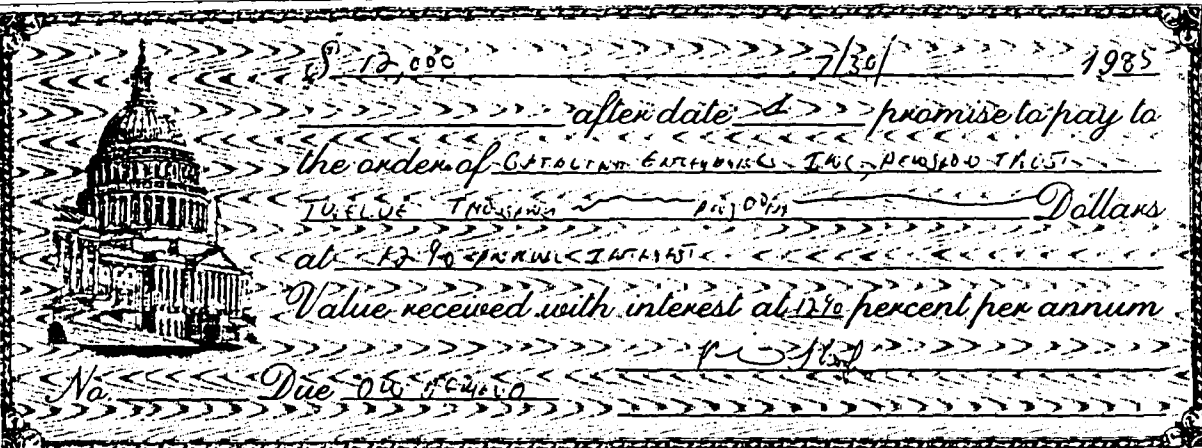 $ 12,000 7/30/ 1985
after date I promise to pay to
the order of CATALINA ENTERPRISES INC. PENSION TRUST
TWELVE THOUSAND AND 00/100 Dollars
at 12% ANNUAL INTEREST
Value received with interest at 12% percent per annum
No. Due ON DEMAND